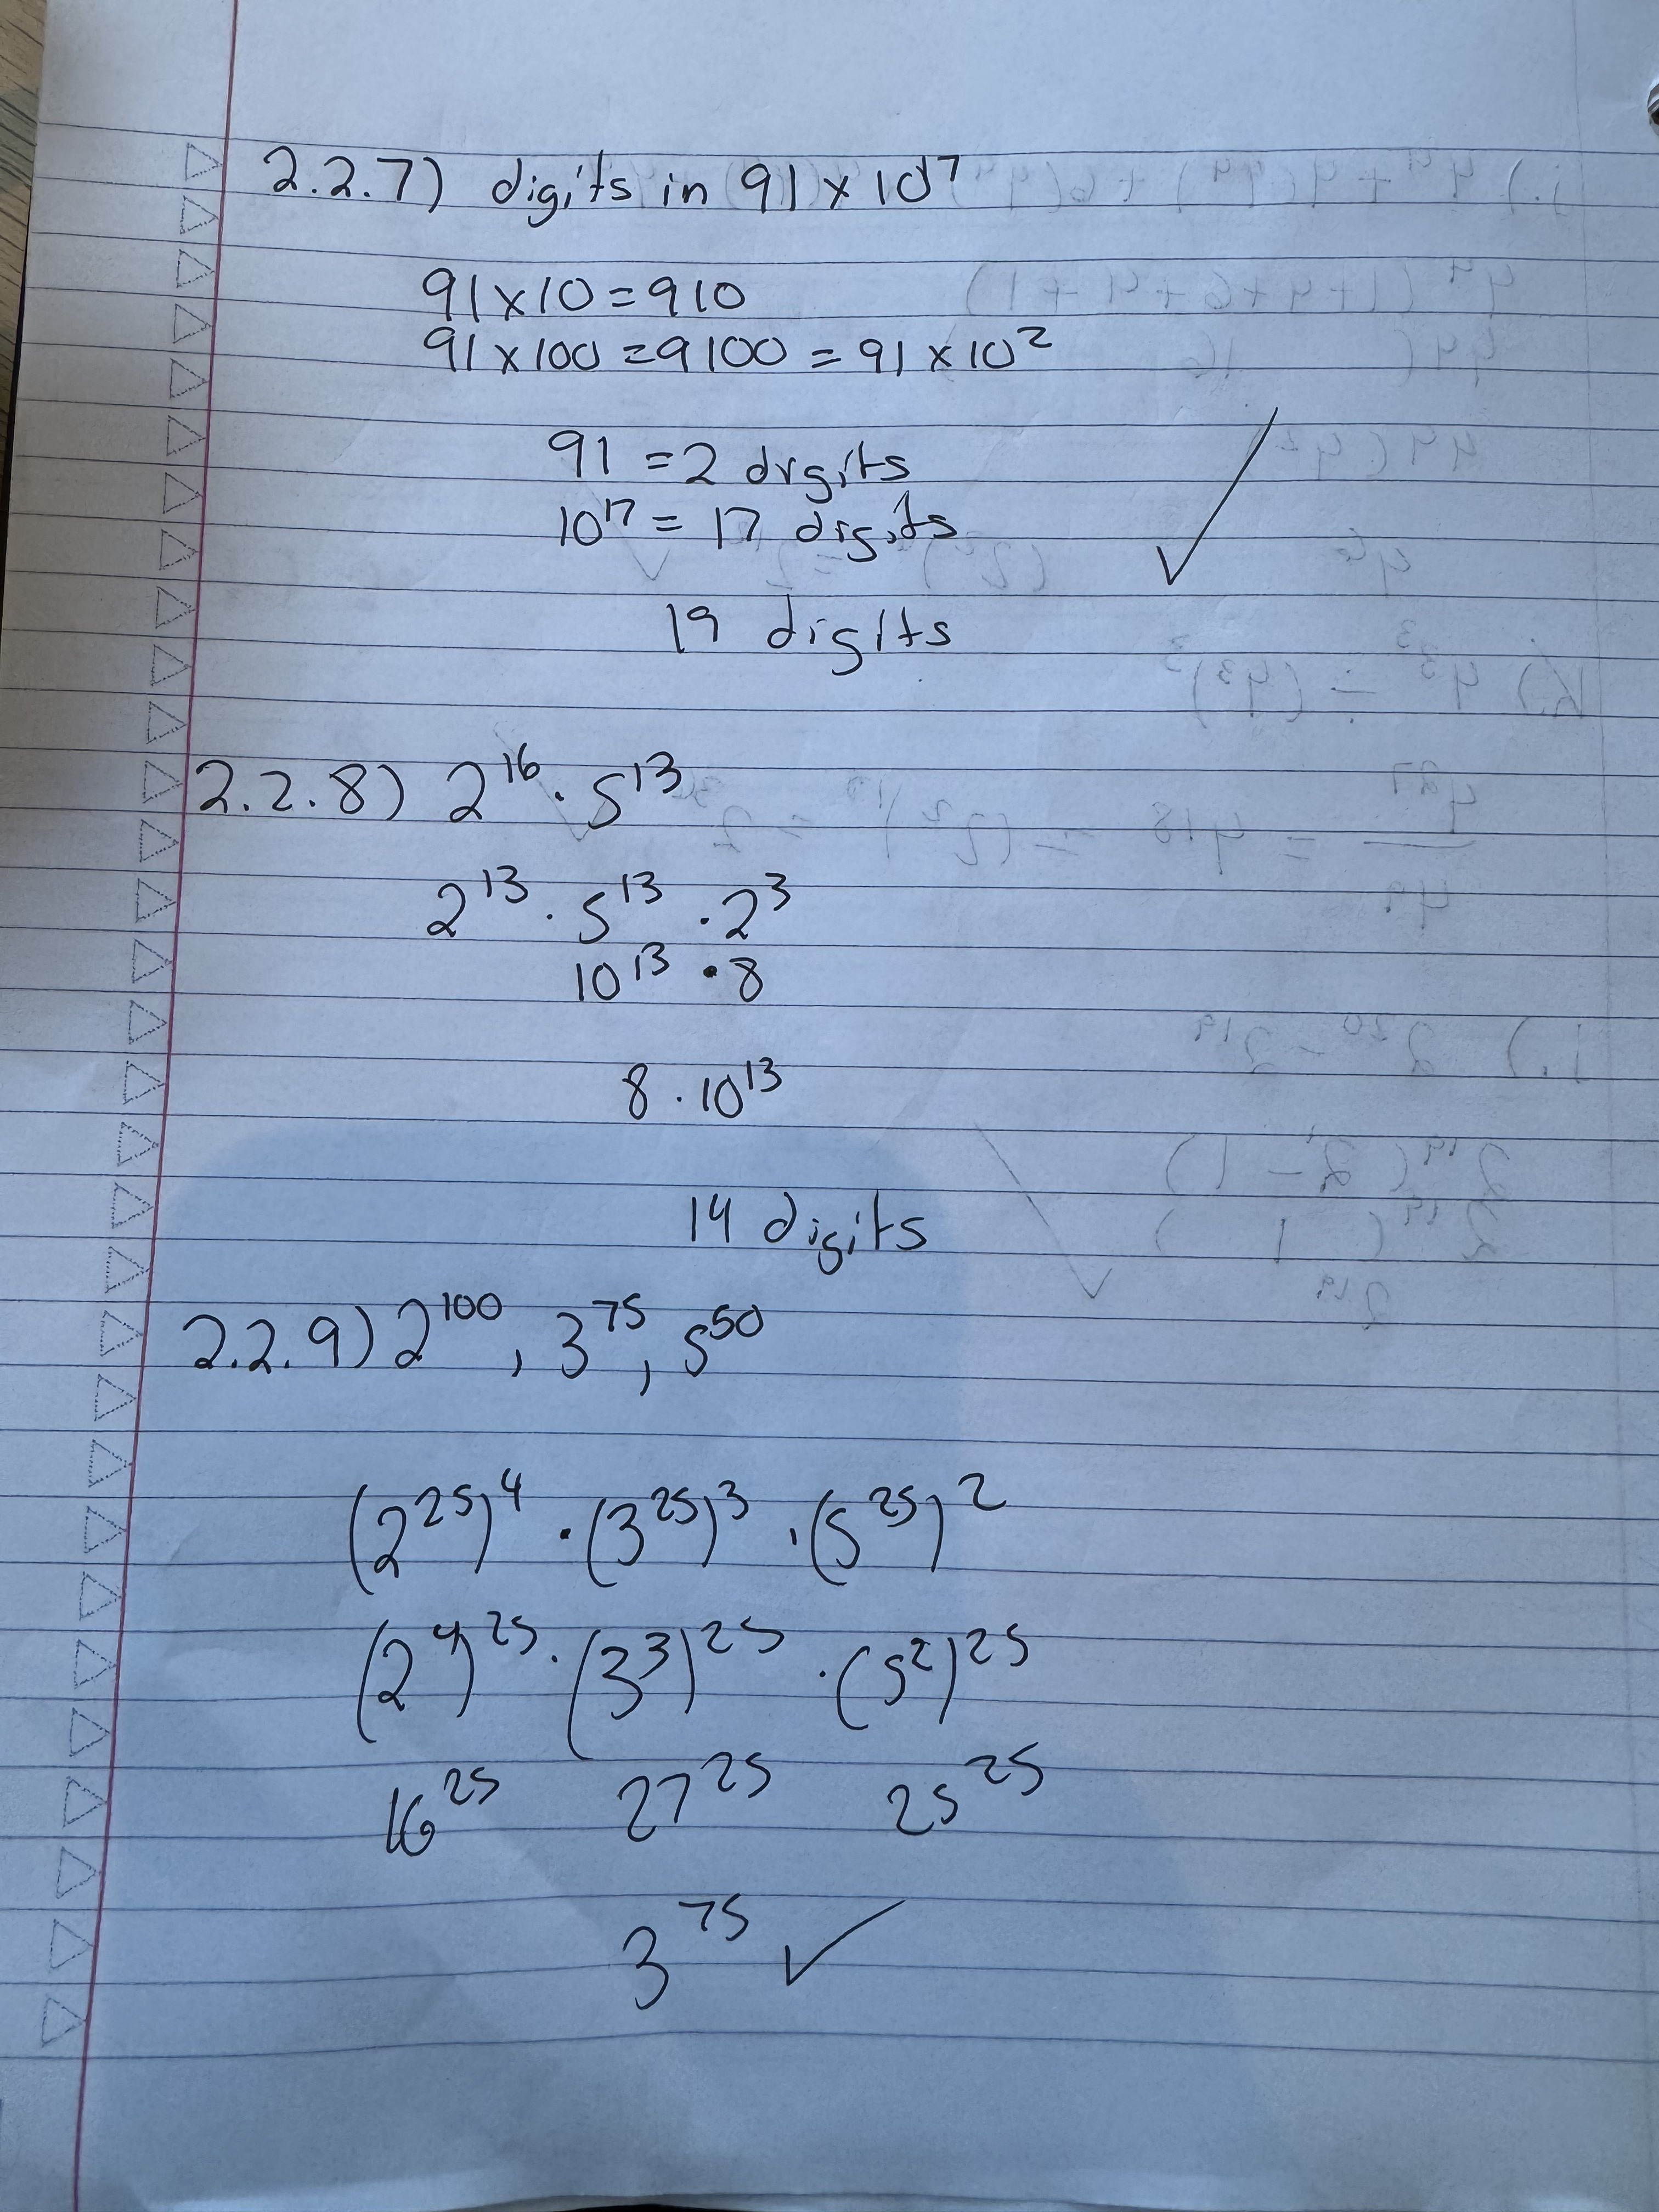 2.2.7) digits in 91 x 10¹⁷
91 x 10 = 910
91 x 100 = 9100 = 91 x 10²
91 = 2 digits
10¹⁷ = 17 digits
19 digits ✓
2.2.8) 2¹⁶ · 5¹³
2¹³ · 5¹³ · 2³
10¹³ · 8
8 · 10¹³
14 digits
2.2.9) 2¹⁰⁰, 3⁷⁵, 5⁵⁰
(2²⁵)⁴ · (3²⁵)³ · (5²⁵)²
(2⁴)²⁵ · (3³)²⁵ · (5²)²⁵
16²⁵ 27²⁵ 25²⁵
3⁷⁵ ✓